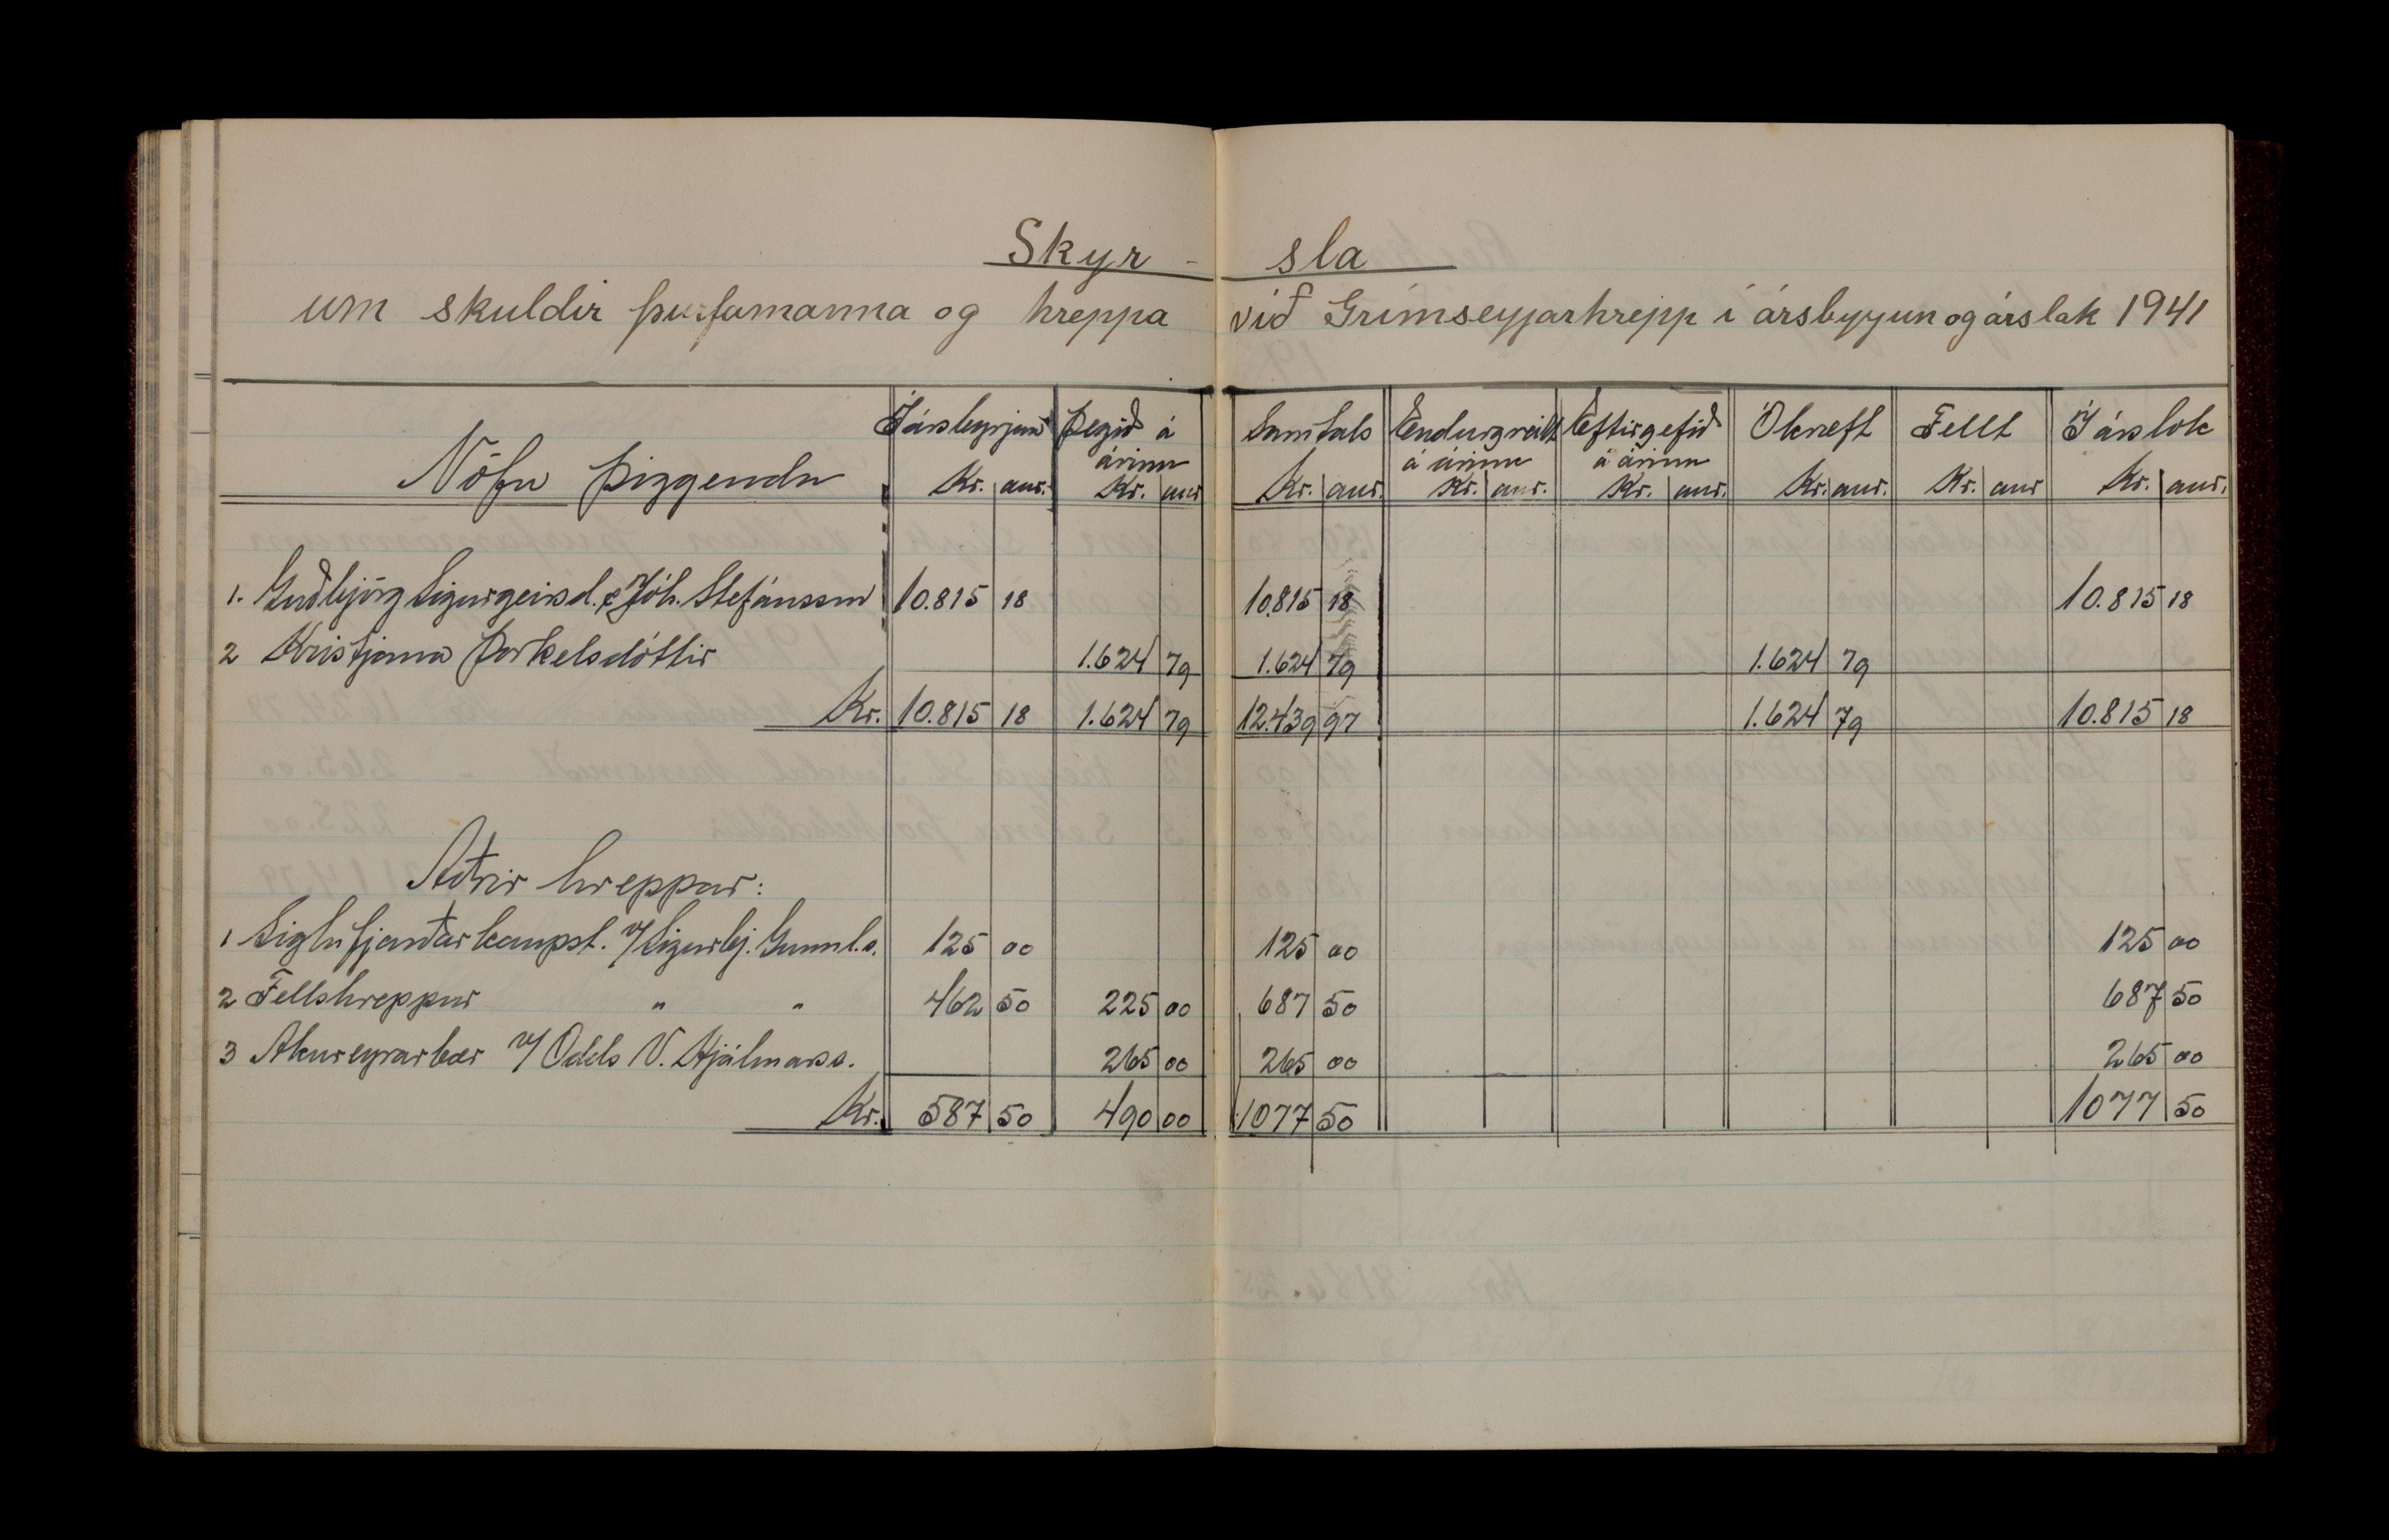 Skyr - sla
um skuldir þurfamanna og hreppa við Grímseyjarhrepp í ársbyyun og árslok 1941
Nöfn þiggenda | Í ársbyrjun Kr. aur. | Þegið á árinu Kr. aur | Samtals Kr. aur. | Endurgreitt á árinu Kr. aur. | Eftirgefið á árinu Kr. aur. | Ókræft Kr. aur. | Fellt Kr. aur | Í árslok Kr. aur.
1. Guðbjörg Sigurgeirsd. & Jóh. Stefánsson 10.815 18 10.815 18 10.815 18
2 Kristjana Þorkelsdóttir 1.624 79 1.624 79 1.624 79
Kr. 10.815 18 1.624 79 12.439 97 1.624 79 10.815 18
Aðrir hreppar:
1 Siglufjarðarkaupst. v/ Sigurbj. Gunnl.s. 125 00 125 00 125 00
2 Fellshreppur " " 462 50 225 00 687 50 687 50
3 Akureyrarbær v/ Odds V. Hjálmarss. 265 00 265 00 265 00
Kr. 587 50 490 00 1077 50 1077 50